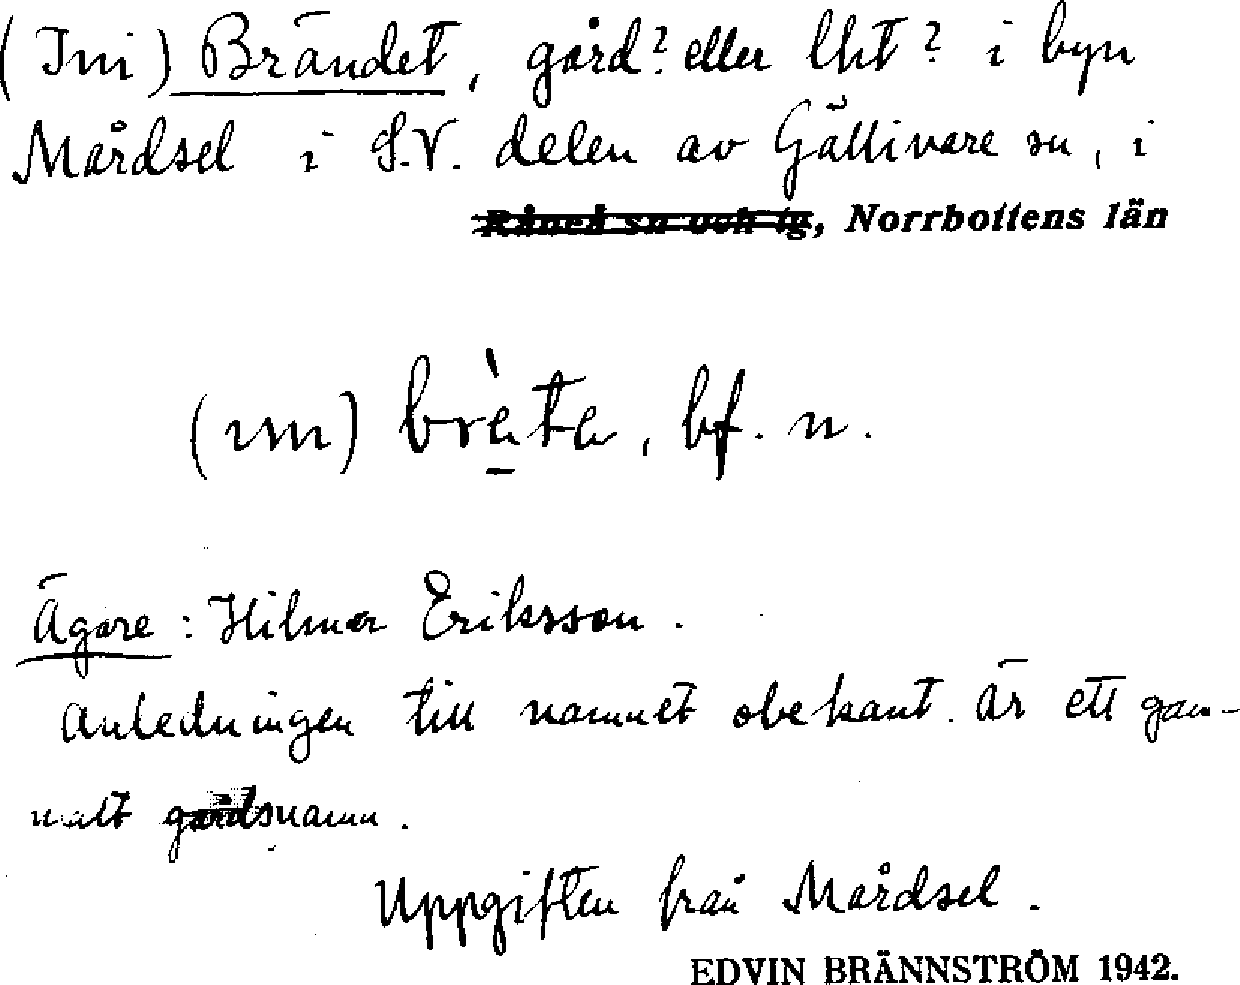 (Ini) Brändet, gård? eller lht? i byn
Mårdsel i S.V. delen av Gällivare sn, i
Råneå sn och tg, Norrbottens län
bf. n.
Ägare: Hilmer Eriksson.
Anledningen till namnet obekant. Är ett gam-
malt gårdsnamn.
Uppgiften från Mårdsel.
EDVIN BRÄNNSTRÖM 1942.